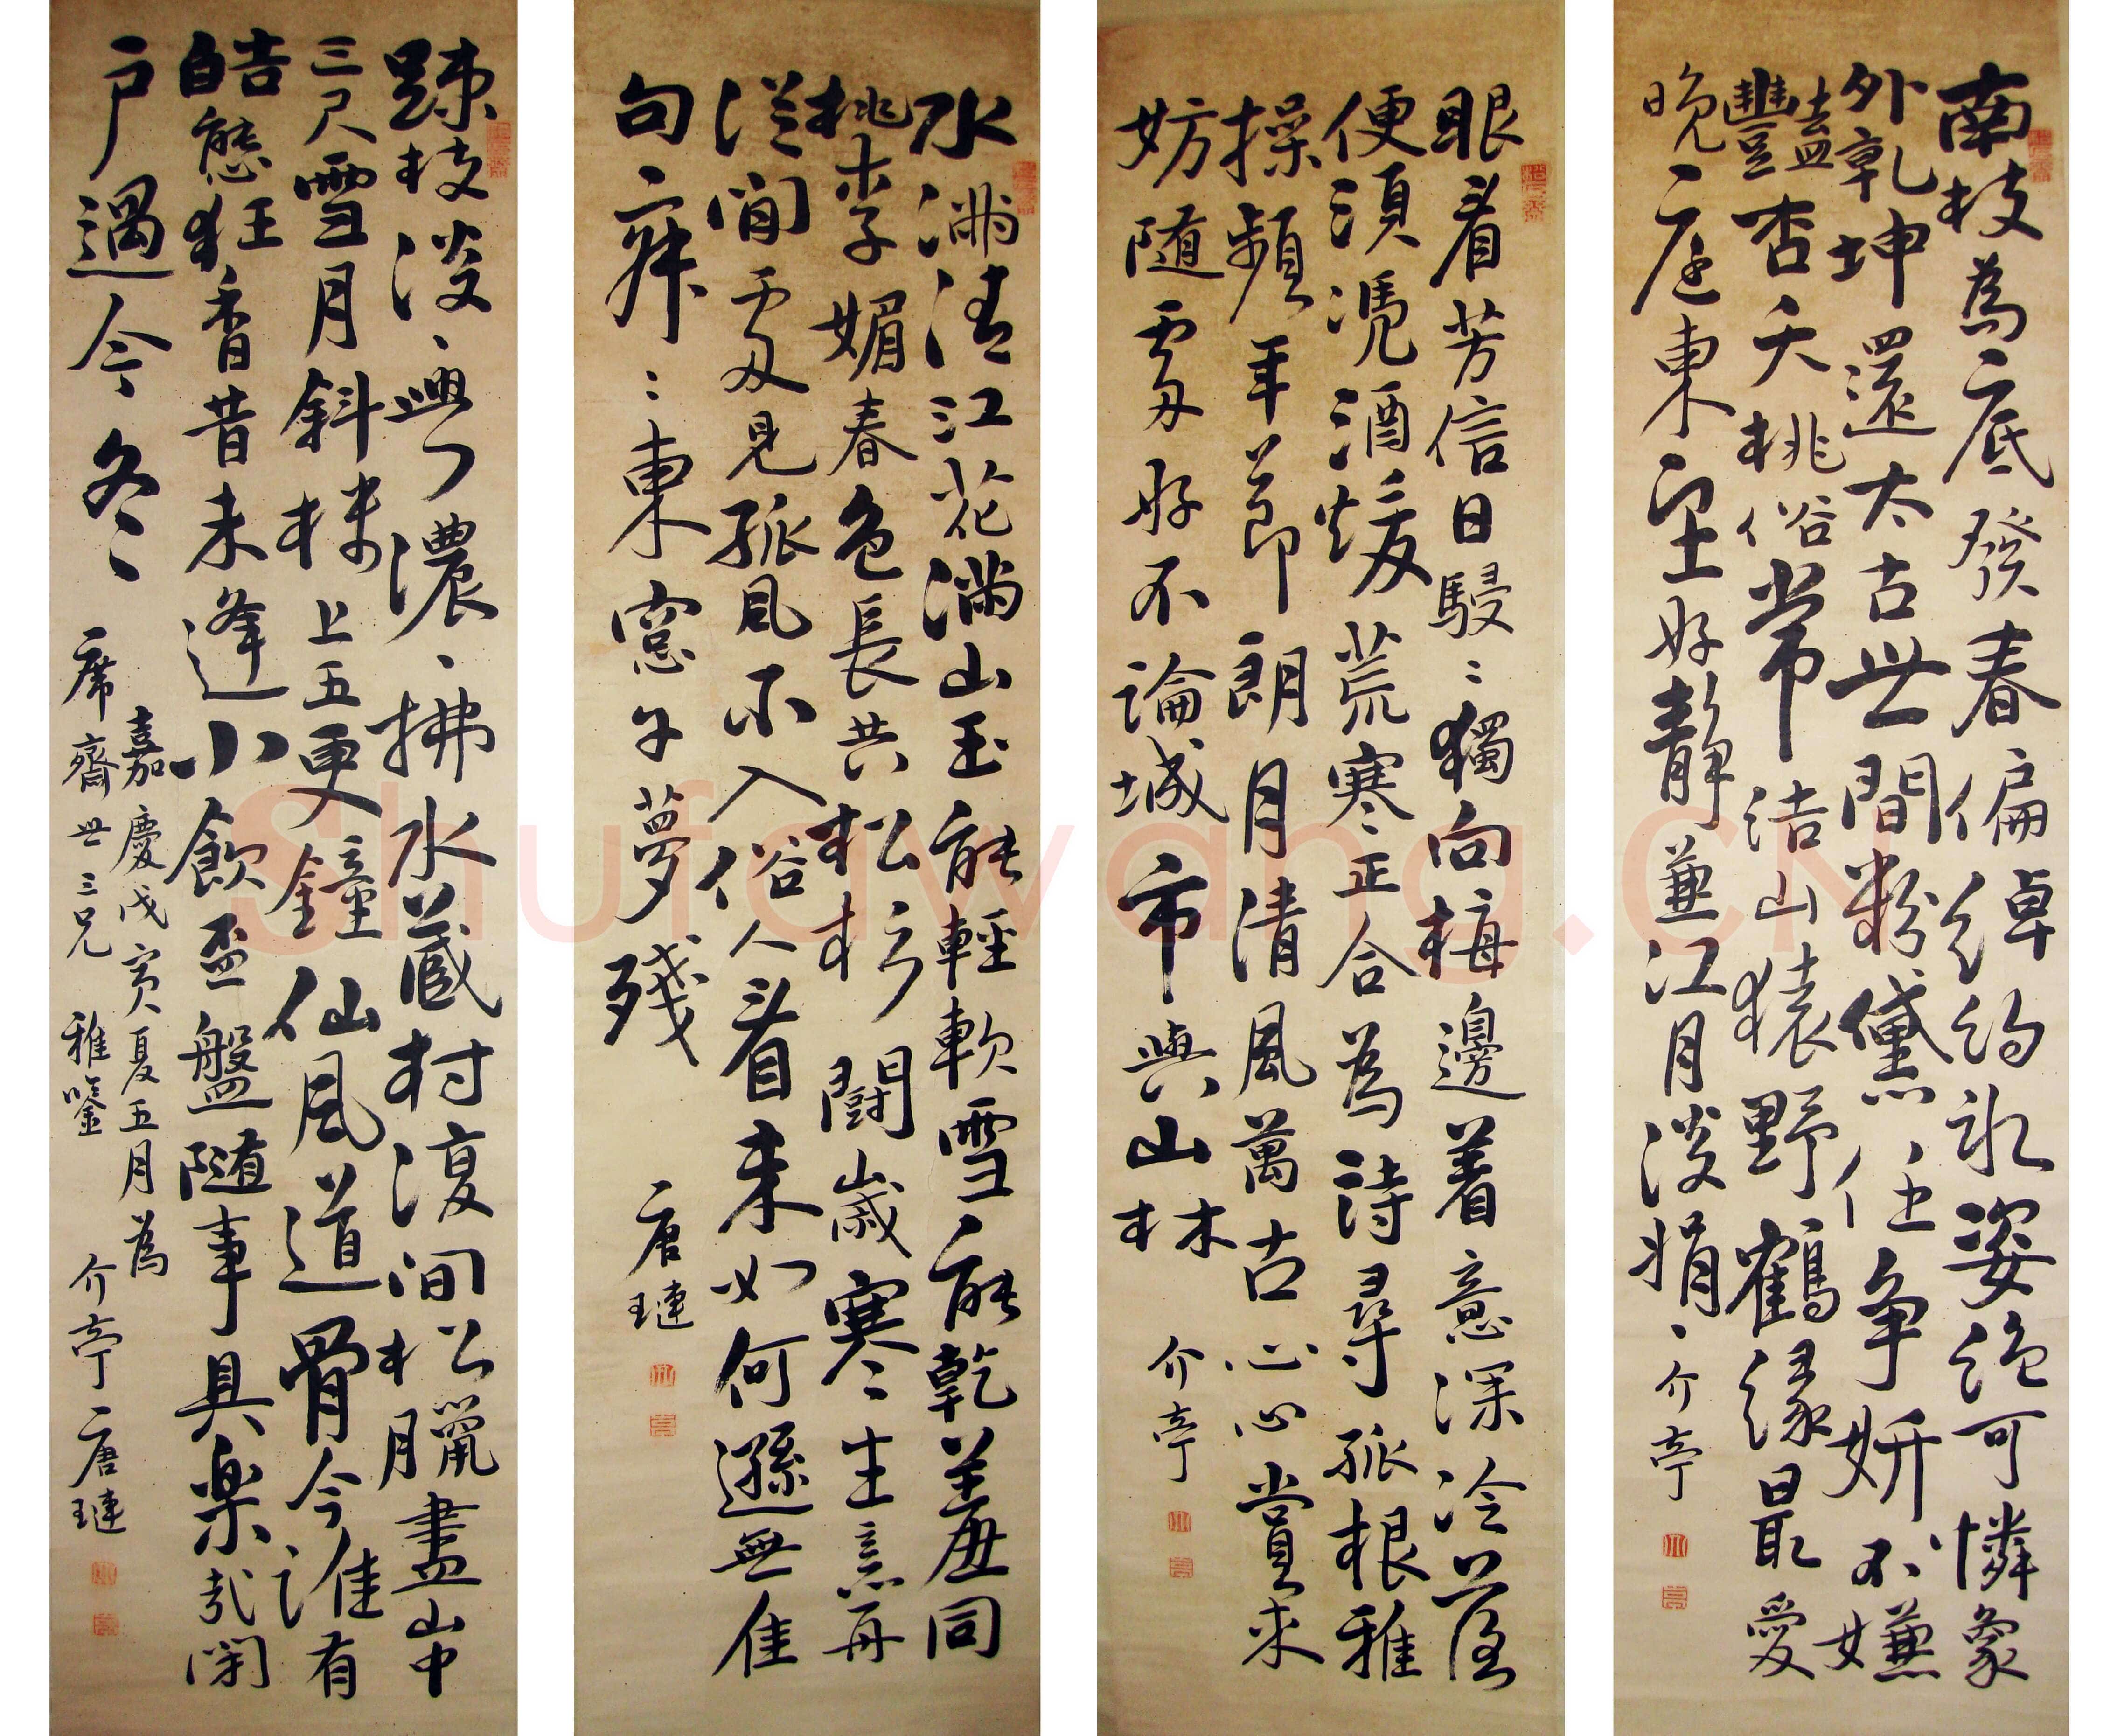 南枝為底發春偏綽約冰姿絕可憐象
外乾坤還太古世間粉黛任爭妍不嫌
豔杏夭桃俗常結山猿野鶴緣最愛
晚庭東望好靜兼江月淡娟、介亭
眼看芳信日駸〻獨向梅邊着意深冷落
便須凴酒煖荒寒正合為詩尋孤根雅
操頻年節朗月清風萬古心心賞來
妨隨處好不論城市與山林 介亭
水滿清江花滿山玉能輕軟雪能乾羞同
桃李媚春色長共松杉鬪歲寒生意再
從閒處見孤風不入俗人看來如何遜無佳
句寂〻東窓午夢殘 唐璉
疎枝淡、與濃、拂水藏村復間松臘盡山中
三尺雪月斜樓上五更鐘仙風道骨今誰有
皓態狂香昔未逢小飲盃盤隨事具樂哉閉
戶過今冬
嘉慶戊寅夏五月為
席齋世三兄 雅鑒 介亭唐璉
Shufawang.CN